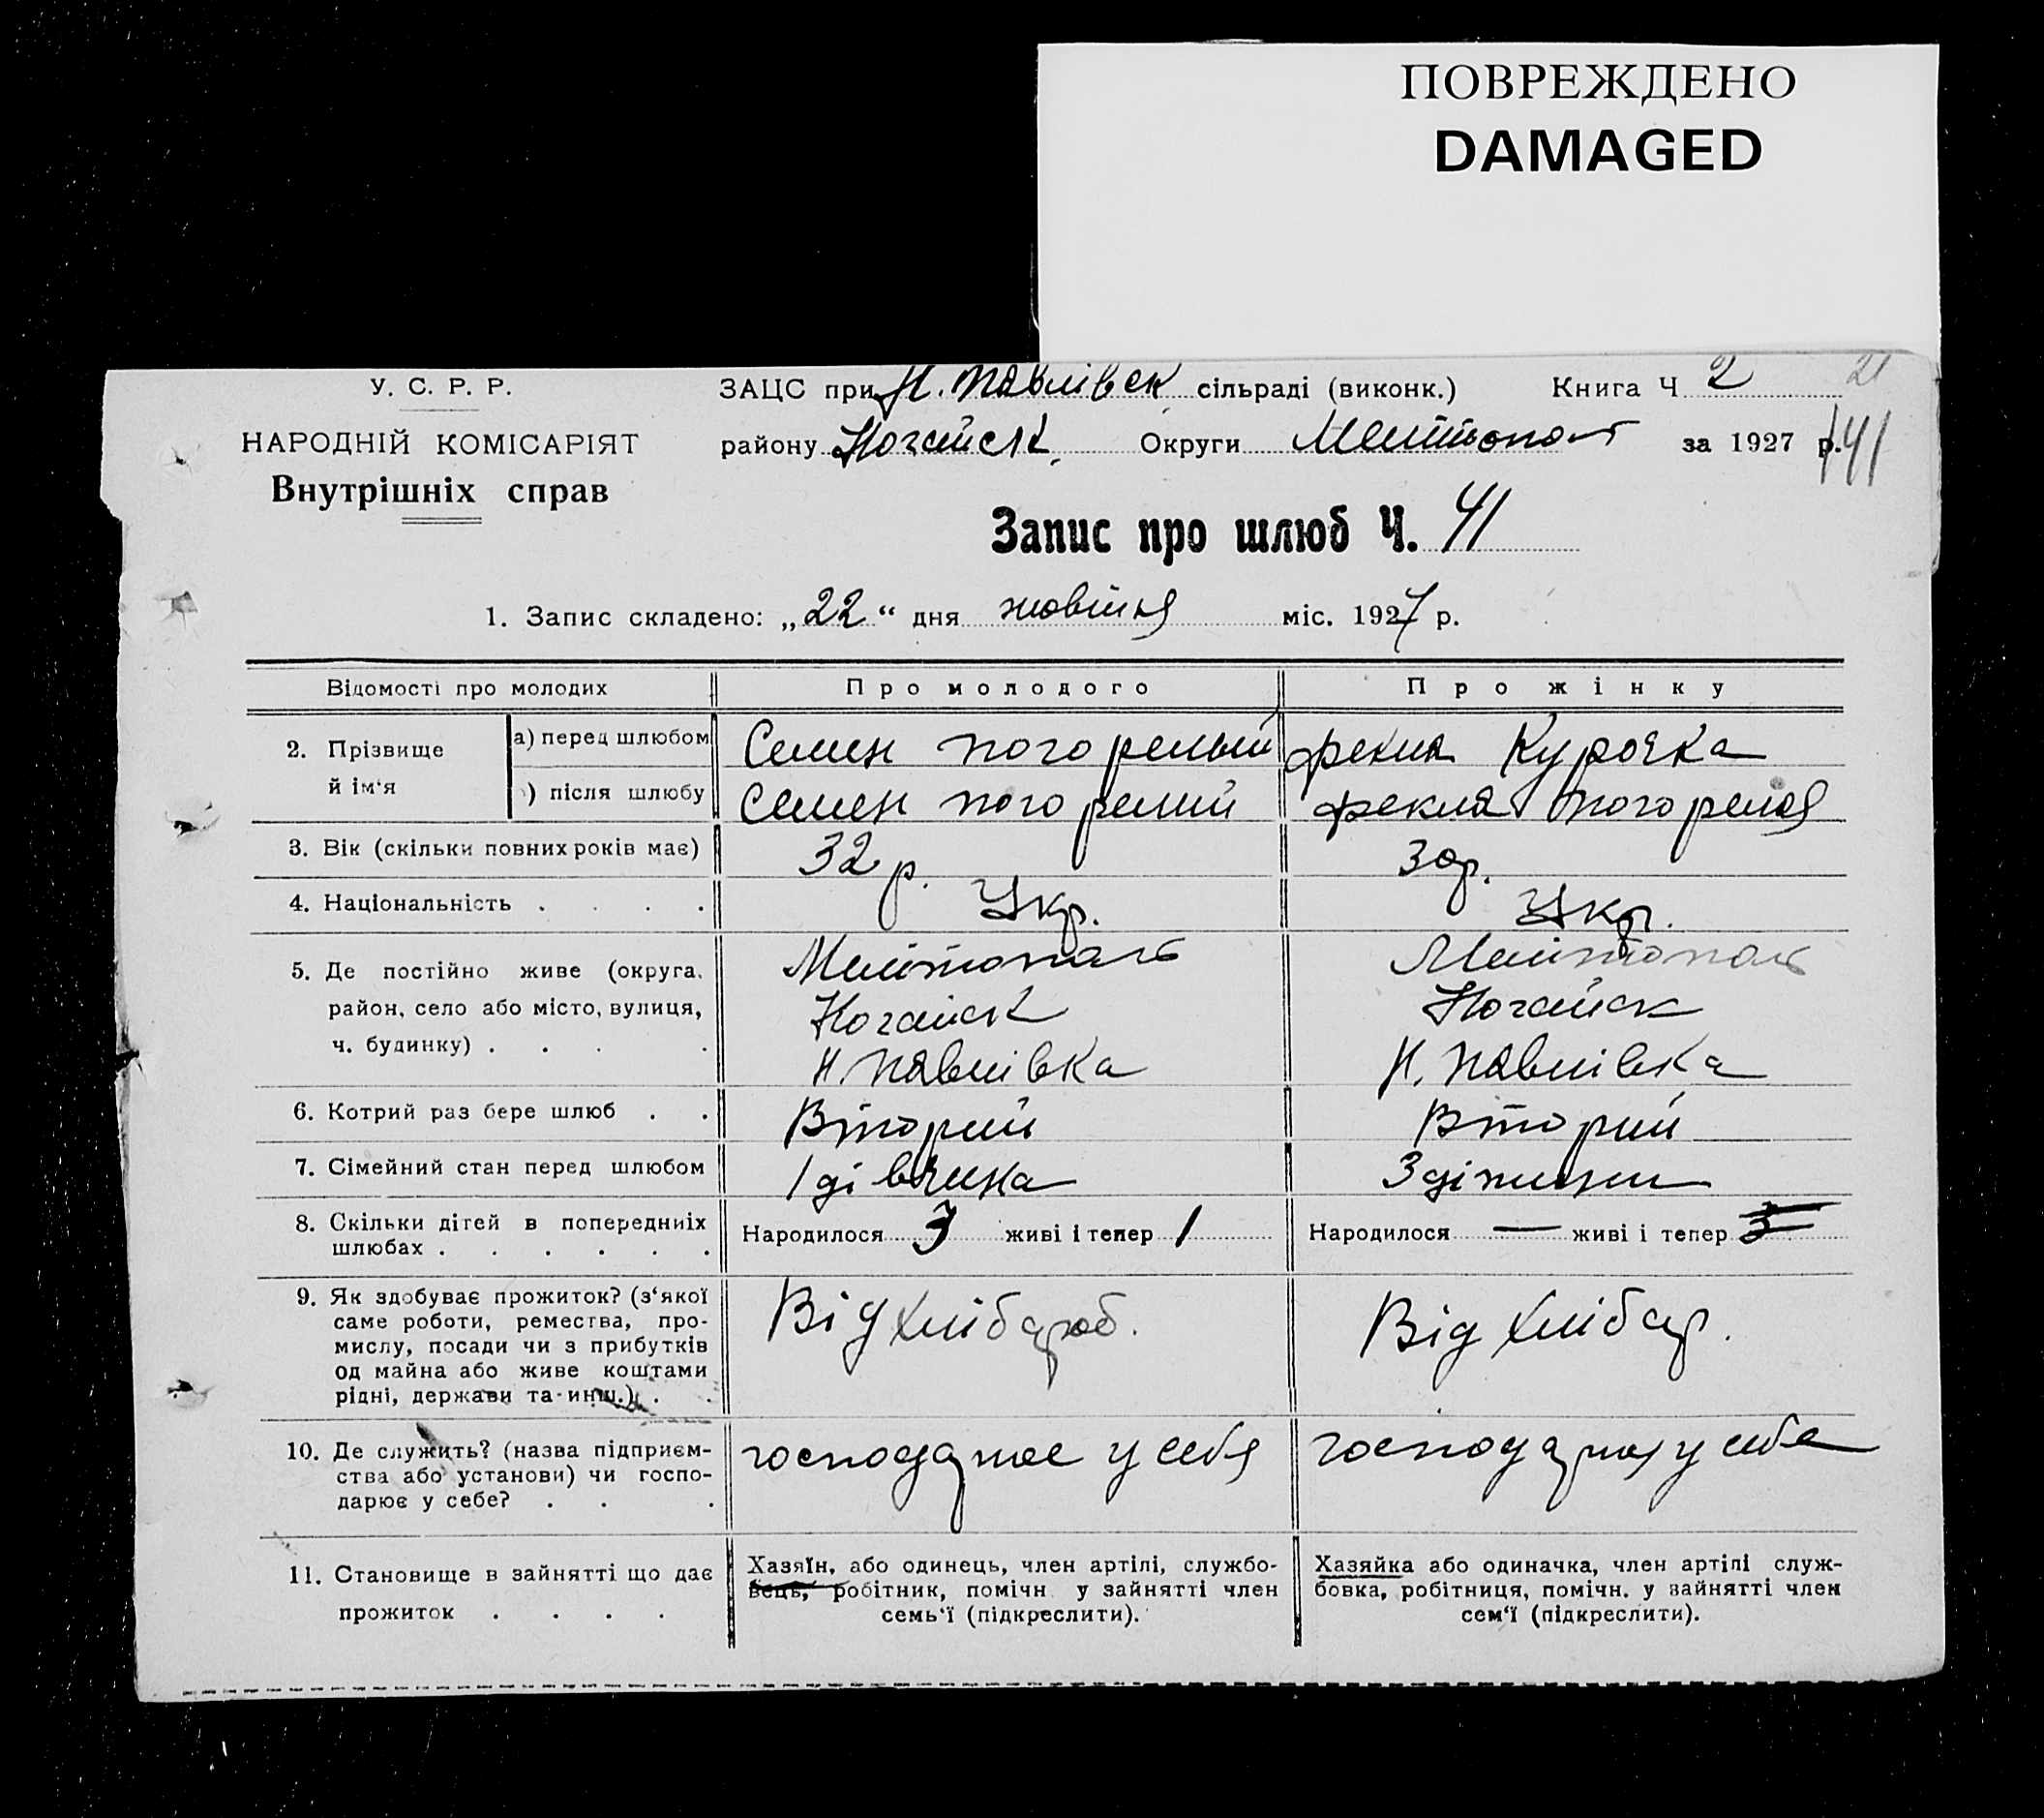 ПОВРЕЖДЕНО
DAMAGED
У. С. Р. Р.
НАРОДНІЙ КОМІСАРІЯТ
Внутрішніх справ
ЗАЦС при Н. Павлівск сільраді (виконк.) Книга Ч 2 21
району Ногайск. Округи Мелітопол за 1927 р. 41
Запис про шлюб Ч. 41
1. Запис складено: „22“ дня жовтня міс. 1927 р.
Відомості про молодих Про молодого Про жінку
2. Прізвище й ім‘я
а) перед шлюбом Семен Погорелый Фекла Курочка
) після шлюбу Семен Погорелий Фекла Погорелая
3. Вік (скільки повних років має) 32 р. 30 р.
4. Національність . . . . Укр. Укр.
5. Де постійно живе (округа, Мелітополь Мелітополь
район, село або місто, вулиця, Ногайск Ногайск
ч. будинку) . . . . Н. Павлівка Н. Павлівка
6. Котрий раз бере шлюб . . Вторий Вторий
7. Сімейний стан перед шлюбом 1 дівчина 3 дітини
8. Скільки дітей в попередниіх Народилося 3 живі і тепер 1 Народилося — живі і тепер 3
шлюбах . . . . . .
9. Як здобуває прожиток? (з‘якої Від хлібороб. Від хлібар.
саме роботи, ремества, про-
мислу, посади чи з прибутків
од майна або живе коштами
рідні, держави та инш.) . .
10. Де служить? (назва підприєм- господарює у себя господарює у себе
ства або установи) чи госпо-
дарює у себе? . . .
11. Становище в зайнятті що дає
прожиток . . . .
Хазяїн, або одинець, член артілі, службо-
вець, робітник, помічн у зайнятті член
семь‘ї (підкреслити).
Хазяйка або одиначка, член артілі служ-
бовка, робітниця, помічн. у зайнятті член
сем‘ї (підкреслити).